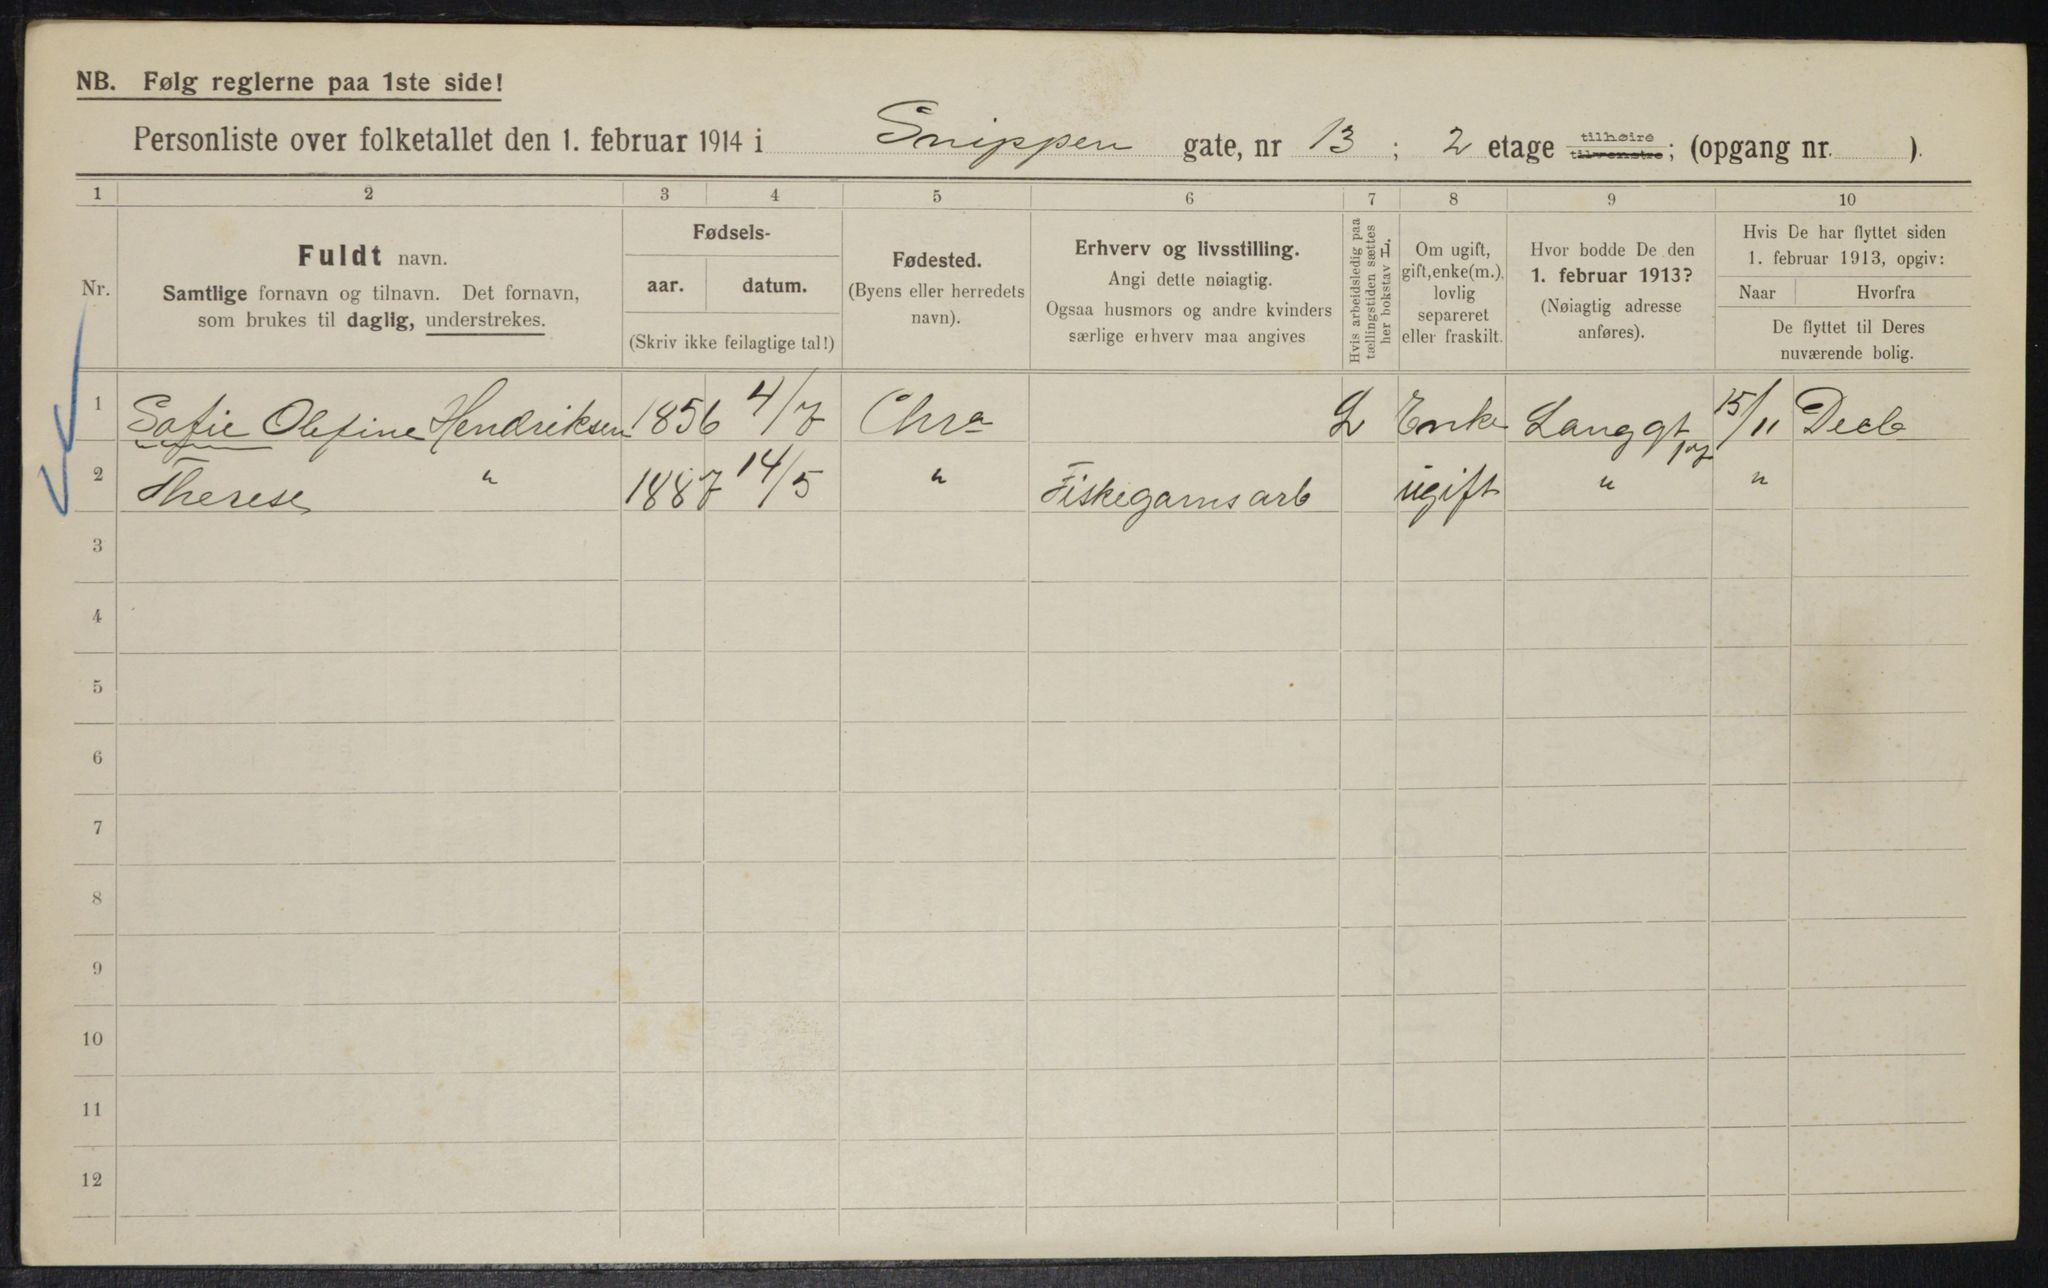 NB. Følg reglerne paa 1ste side!
Personliste over folketallet den 1. februar 1914 i Snippen gate, nr 13 ; 2 etage tilhøire tilvenstre; (opgang nr. ).
1 2 3 4 5 6 7 8 9 10
Nr.
Fuldt navn.
Samtlige fornavn og tilnavn. Det fornavn,
som brukes til daglig, understrekes.
Fødsels-
aar. datum.
(Skriv ikke feilagtige tal!)
Fødested.
(Byens eller herredets
navn).
Erhverv og livsstilling.
Angi dette nøiagtig.
Ogsaa husmors og andre kvinders
særlige erhverv maa angives
Hvis arbeidsledig paa
tællingstiden sættes
her bokstav L.
Om ugift,
gift, enke(m.),
lovlig
separeret
eller fraskilt.
Hvor bodde De den
1. februar 1913?
(Nøiagtig adresse
anføres).
Hvis De har flyttet siden
1. februar 1913, opgiv:
Naar Hvorfra
De flyttet til Deres
nuværende bolig.
1 Sofie Olefine Hendriksen 1856 4/7 Chra L Enke Langgt 15/11
2 Therese " 1887 14/5 " Fiskegarnsarb ugift " "
3
4
5
6
7
8
9
10
11
12